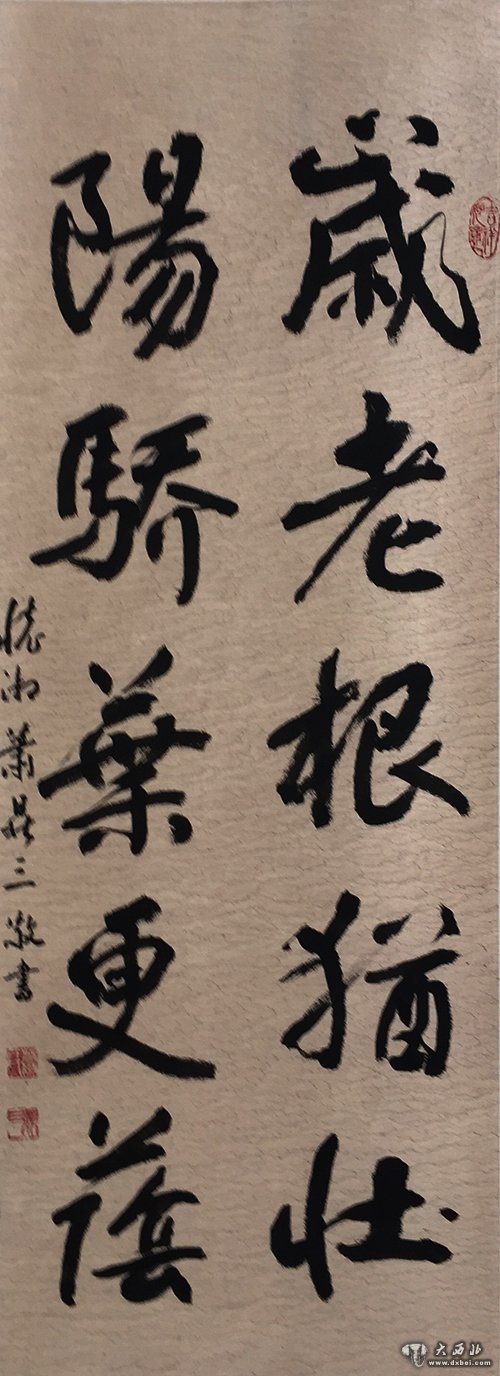 歲老根猶壯
陽驕葉更蔭
湘蕭三敬書
大西北
www.dxbei.com